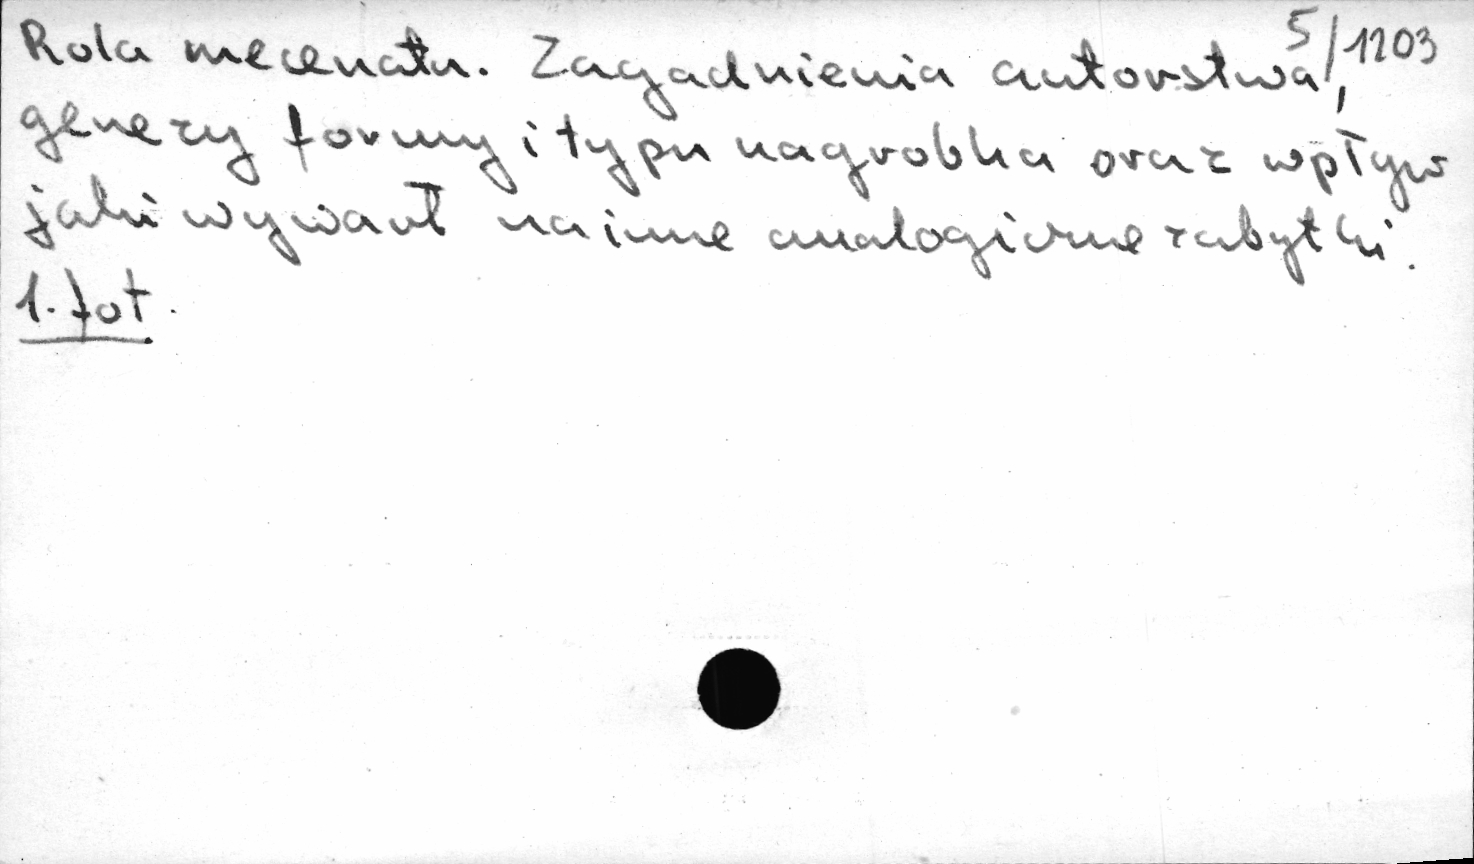 5/1203
Rola mecenatu. Zagadnienia autorstwa,
genezy formy i typu nagrobka oraz wpływ
jaki wywarł na inne analogiczne zabytki.
1. fot.